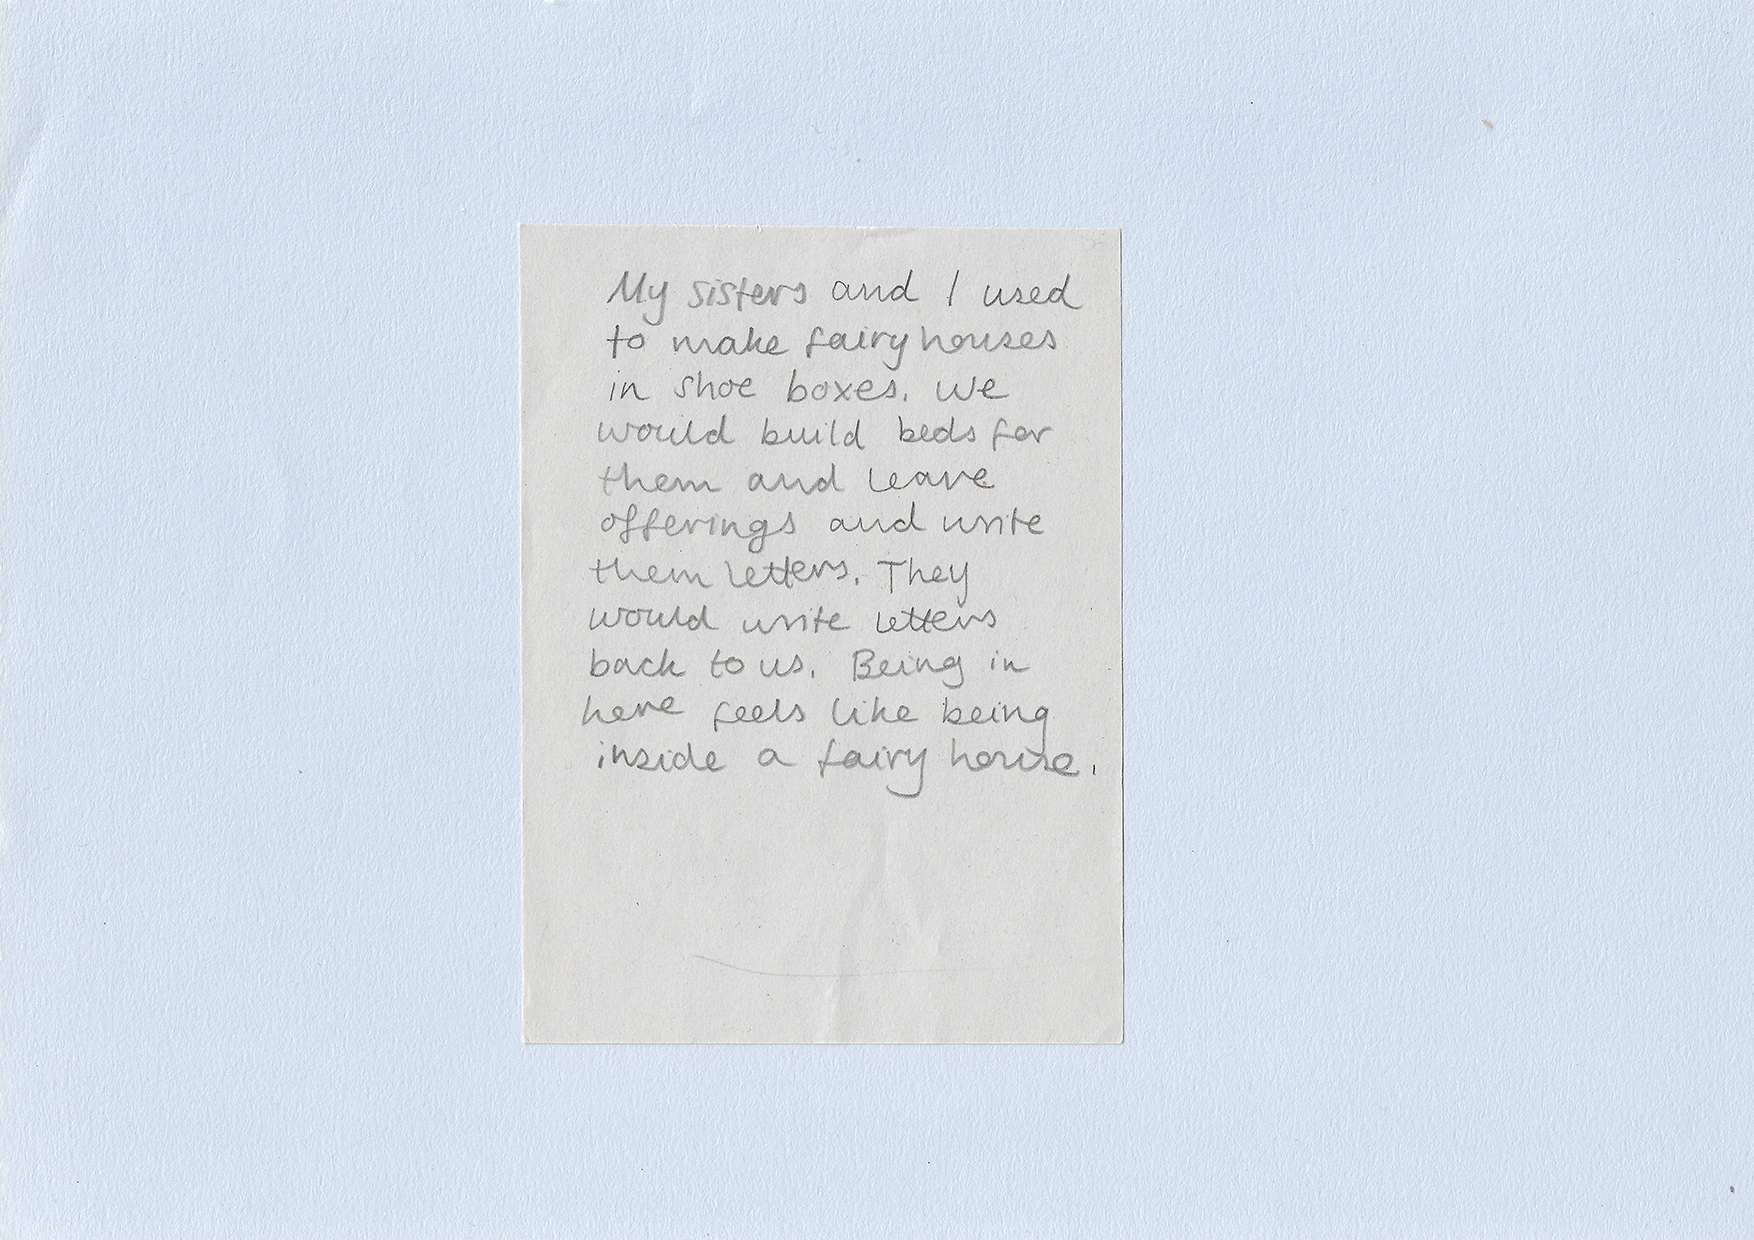 My sisters and I used
to make fairy houses
in shoe boxes. We
would build beds for
them and leave
offerings and write
them letters. They
would write letters
back to us. Being in
here feels like being
inside a fairy house.